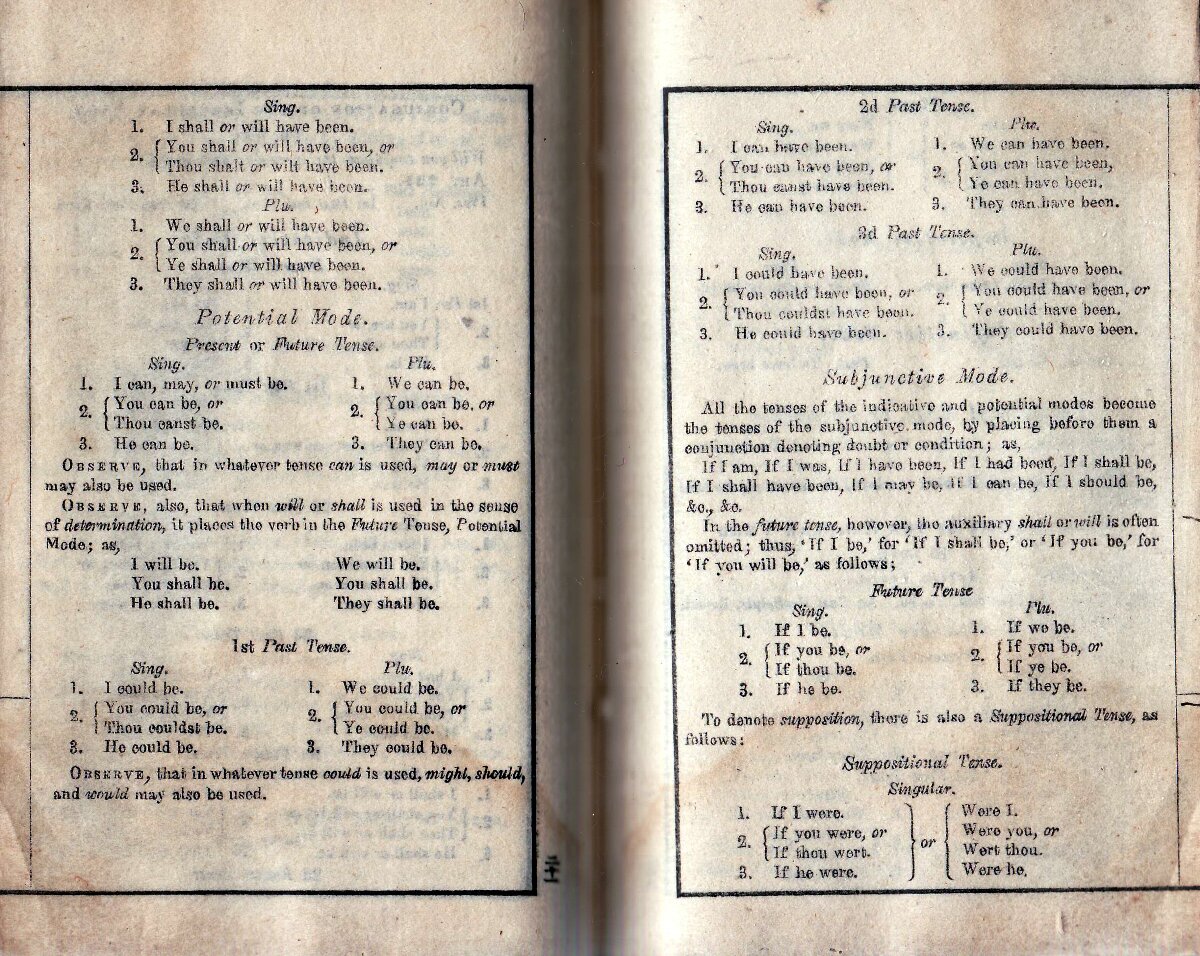 Sing.
1. I shall or will have been.
2. { You shall or will have been, or
Thou shalt or wilt have been.
3. He shall or will have been.
Plu.
1. We shall or will have been.
2. { You shall or will have been, or
Ye shall or will have been.
3. They shall or will have been.
Potential Mode.
Present or Future Tense.
Sing. Plu.
1. I can, may, or must be. 1. We can be.
2. { You can be, or 2. { You can be, or
Thou canst be. Ye can be.
3. He can be. 3. They can be.
OBSERVE, that in whatever tense can is used, may or must
may also be used.
OBSERVE, also, that when will or shall is used in the sense
of determination, it places the verb in the Future Tense, Potential
Mode; as,
I will be. We will be.
You shall be. You shall be.
He shall be. They shall be.
1st Past Tense.
Sing. Plu.
1. I could be. 1. We could be.
2. { You could be, or 2. { You could be, or
Thou couldst be. Ye could be.
3. He could be. 3. They could be.
OBSERVE, that in whatever tense could is used, might, should,
and would may also be used.
二十
2d Past Tense.
Sing. Plu.
1. I can have been. 1. We can have been.
2. { You can have been, or 2. { You can have been,
Thou canst have been. Ye can have been.
3. He can have been. 3. They can have been.
3d Past Tense.
Sing. Plu.
1. I could have been. 1. We could have been.
2. { You could have been, or 2. { You could have been, or
Thou couldst have been. Ye could have been.
3. He could have been. 3. They could have been.
Subjunctive Mode.
All the tenses of the indicative and potential modes become
the tenses of the subjunctive mode, by placing before them a
conjunction denoting doubt or condition; as,
If I am, If I was, If I have been, If I had been, If I shall be,
If I shall have been, If I may be, If I can be, If I should be,
&c., &c.
In the future tense, however, the auxiliary shall or will is often
omitted; thus, ‘If I be,’ for ‘If I shall be,’ or ‘If you be,’ for
‘If you will be,’ as follows;
Future Tense
Sing. Plu.
1. If I be. 1. If we be.
2. { If you be, or 2. { If you be, or
If thou be. If ye be.
3. If he be. 3. If they be.
To denote supposition, there is also a Suppositional Tense, as
follows:
Suppositional Tense.
Singular.
1. If I were. Were I.
2. { If you were, or } or { Were you, or
If thou wert. Wert thou.
3. If he were. Were he.